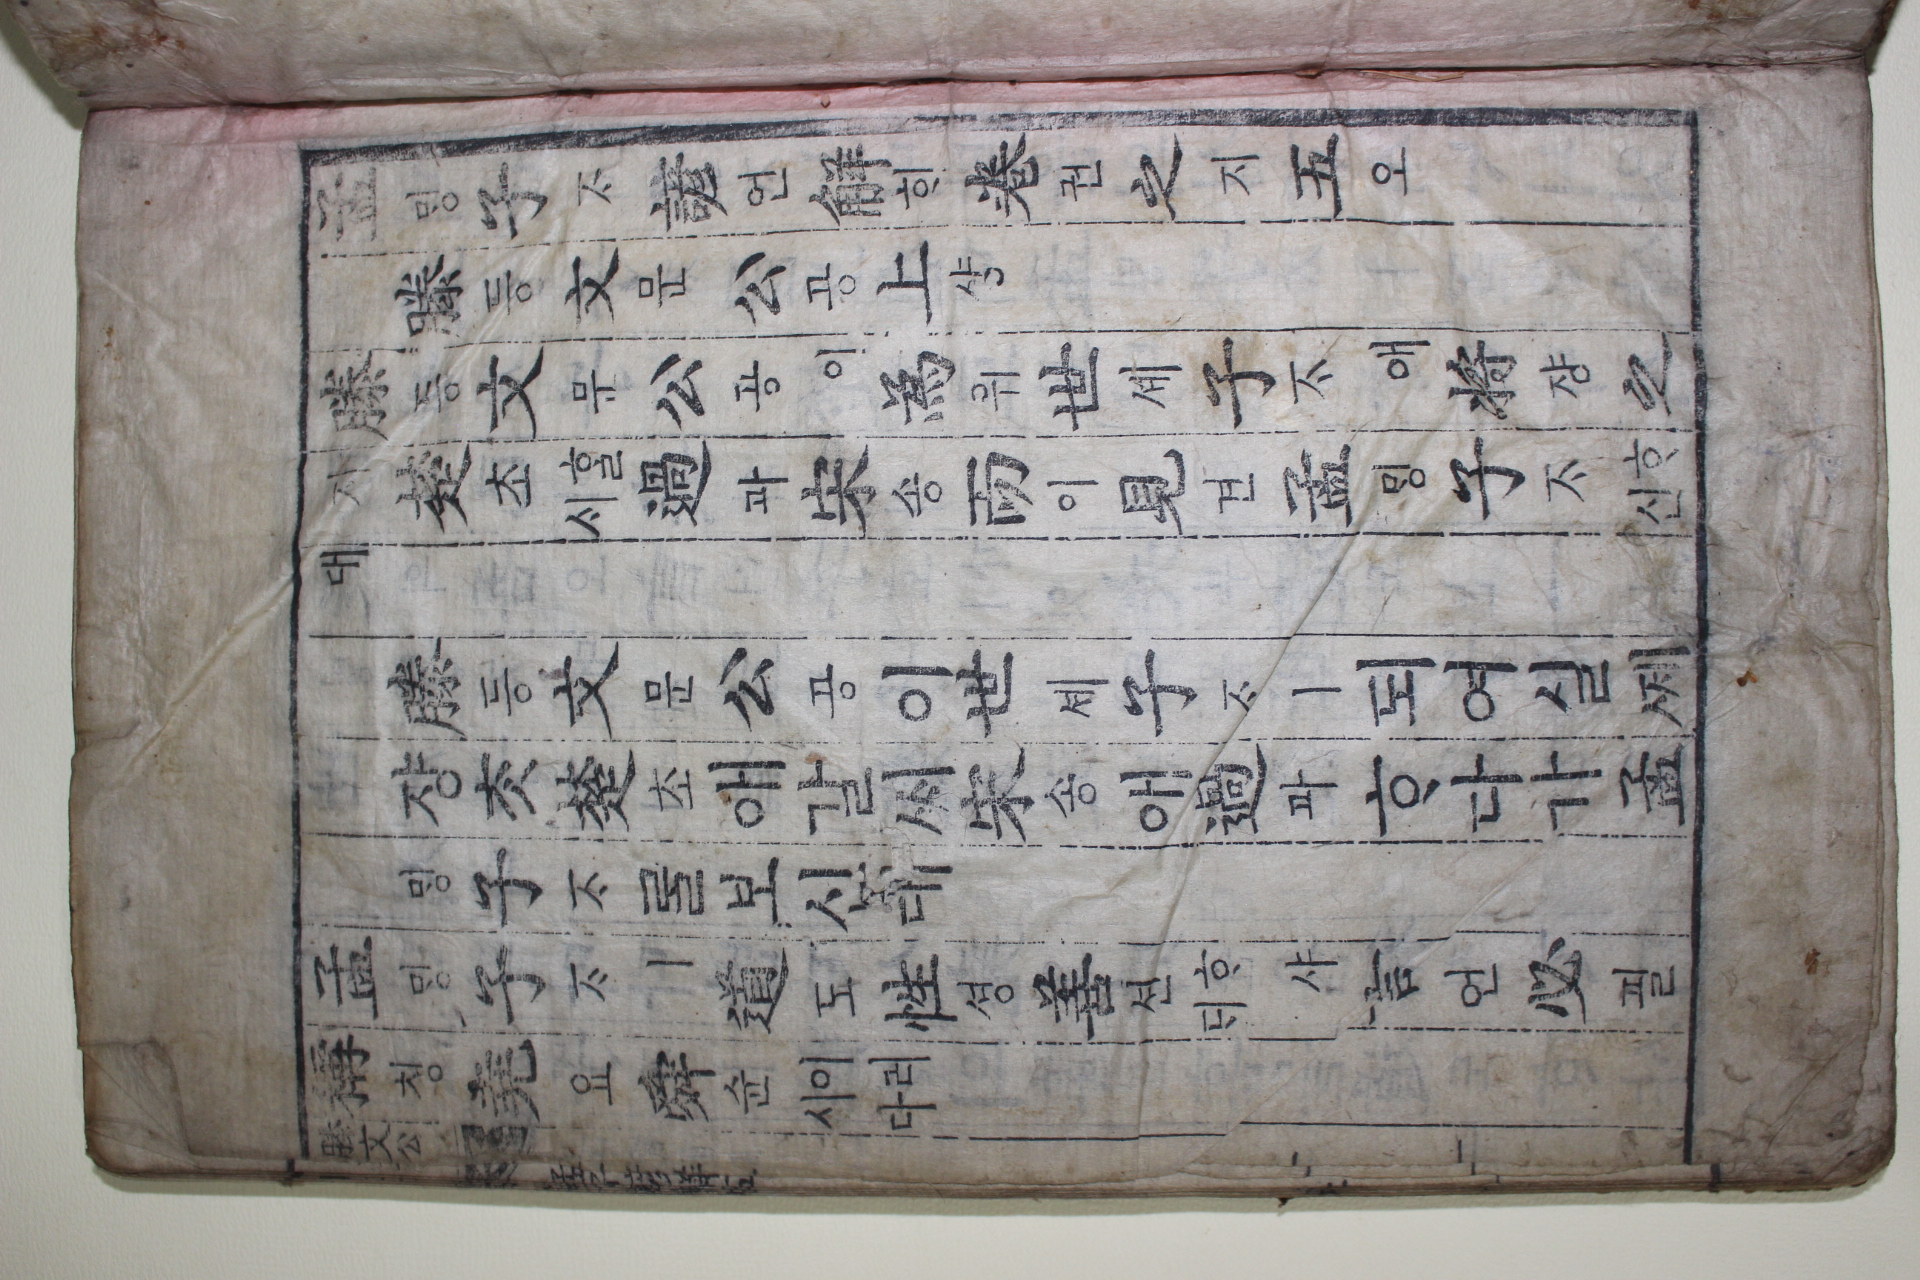 孟ᄆᆡᇰ子ᄌᆞ諺언解ᄒᆡ卷권之지五오
滕등文문公공上샹
滕등文문公공이為위世셰子ᄌᆞ애將쟝之
지楚초ᄒᆞᆯᄉᆡ過과宋송而이見견孟ᄆᆡᇰ子ᄌᆞᄒᆞ신
대
滕등文문公공이世셰子ᄌᆞㅣ되여실ᄶᅦ
쟝ᄎᆞᆺ楚초애갈ᄊᆡ宋송애過과ᄒᆞ다가孟
ᄆᆡᇰ子ᄌᆞ를보신대
孟ᄆᆡᇰ子ᄌᆞㅣ道도性셩善션ᄒᆞ샤ᄃᆡ言언必필
稱칭堯요舜슌이러시다
滕文公
孟子諺解五